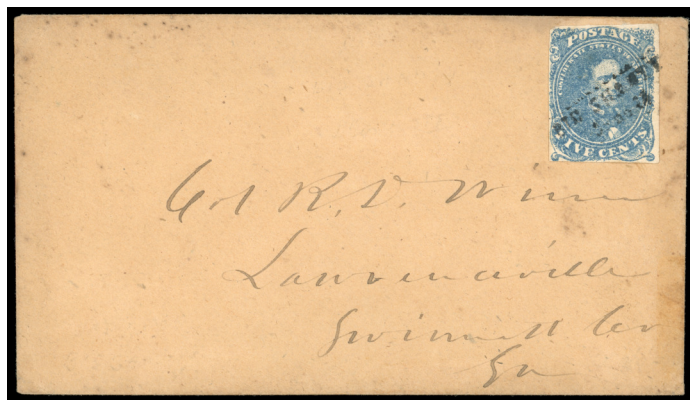 POSTAGE
CONFEDERATE STATES
FIVE CENTS
Col R. D. Winn
Lawrenceville
Gwinnett Co
Ga